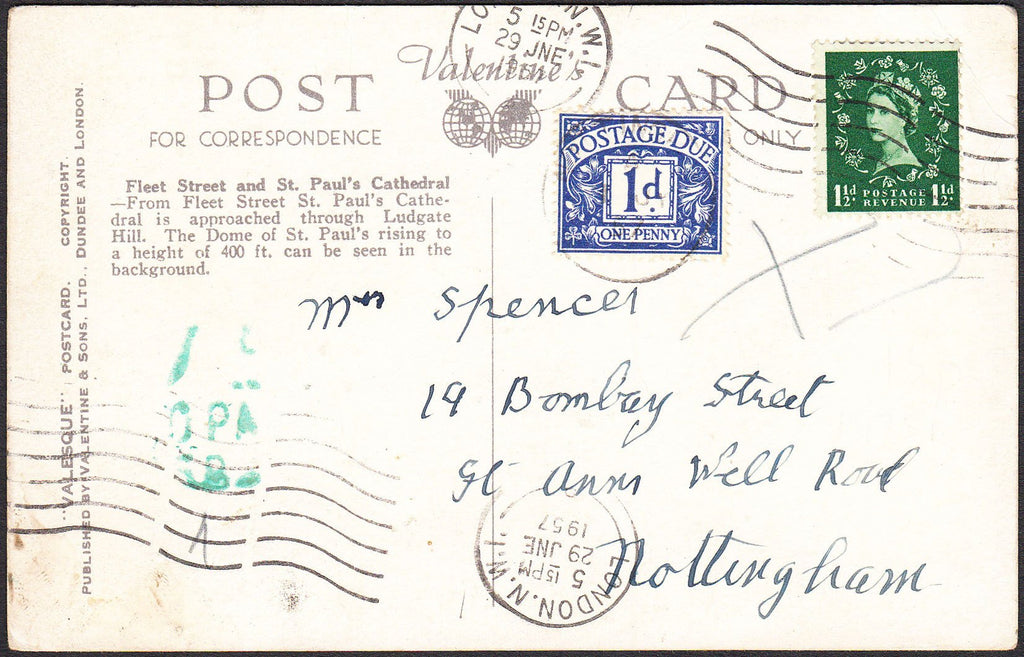 LONDON. N.W.1.
5 15PM
29 JNE
1957
Valentine's
POST CARD
FOR CORRESPONDENCE ONLY
POSTAGE DUE
1d.
ONE PENNY
1½d POSTAGE REVENUE 1½d.
Fleet Street and St. Paul's Cathedral
—From Fleet Street St. Paul's Cathe-
dral is approached through Ludgate
Hill. The Dome of St. Paul's rising to
a height of 400 ft. can be seen in the
background.
"VALESQUE" POSTCARD. COPYRIGHT.
PUBLISHED BY VALENTINE & SONS, LTD., DUNDEE AND LONDON.
Mrs Spencer
19 Bombay Street
St Anns Well Road
Nottingham
LONDON. N.W.1.
5 15PM
29 JNE
1957